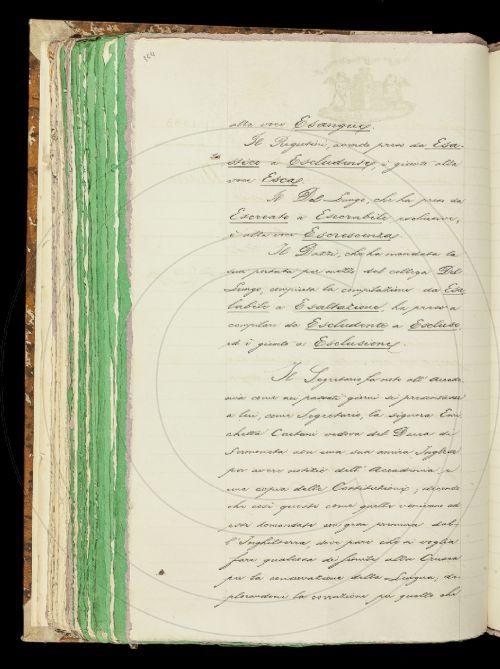 364
alla voce Esangue.
Il Rigutini, avendo preso da Esa-
stico a Escludente, è giunto alla
voce Esca.
Il Del-Lungo, che ha preso da
Escreato a Escrabile esclusive,
è alla voce Escrescenza.
Il Dazzi, che ha mandata la
sua portata per mezzo del collega Del
Lungo, compiuta la compilazione da Esa
labile a Esaltazione, ha preso a
compilar da Escludente a Escluso,
ed è giunto a Esclusione.
Il Segretario fa noto all'Accade
mia come nei passati giorni si presentasse
a lui, come Segretario, la signora
Caetani vedova del Duca di
Sermoneta con una sua amica Inglese
per avere notizie dell'Accademia, e
una copia delle Costituzioni; dicendo
che così queste come quelle venivano ad
essa domandate con gran premura dal-
l'Inghilterra dove pare che si voglia
fare qualcosa di simile alla Crusca
per la conservazione della Lingua; de-
plorandone la corruzione per quello che